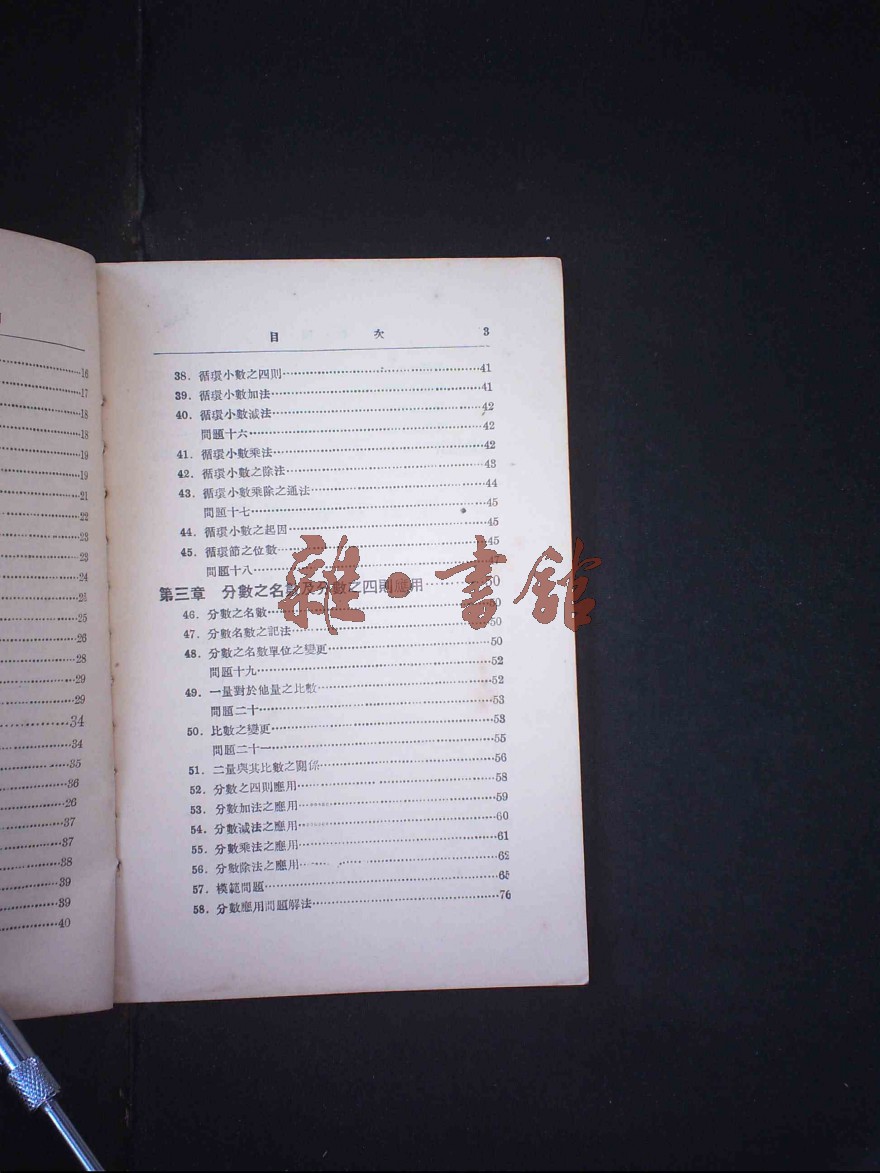 16
17
18
18
19
19
21
22
23
23
24
24
25
26
28
29
29
34
34
35
36
26
37
37
38
39
39
40
目 次 3
38. 循環小數之四則 41
39. 循環小數加法 41
40. 循環小數減法 42
問題十六 42
41. 循環小數乘法 42
42. 循環小數之除法 43
43. 循環小數乘除之通法 44
問題十七 45
44. 循環小數之起因 45
45. 循環節之位數 45
問題十八 47
第三章 分數之名數及分數之四則應用 50
46. 分數之名數 50
47. 分數名數之記法 50
48. 分數之名數單位之變更 50
問題十九 52
49. 一量對於他量之比數 52
問題二十 53
50. 比數之變更 53
問題二十一 55
51. 二量與其比數之關係 56
52. 分數之四則應用 58
53. 分數加法之應用 59
54. 分數減法之應用 60
55. 分數乘法之應用 61
56. 分數除法之應用 62
57. 模範問題 65
58. 分數應用問題解法 76
雜·書館